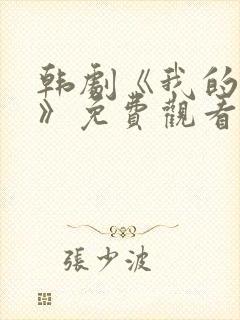 韩劇《我的
》免費觀看
張少波